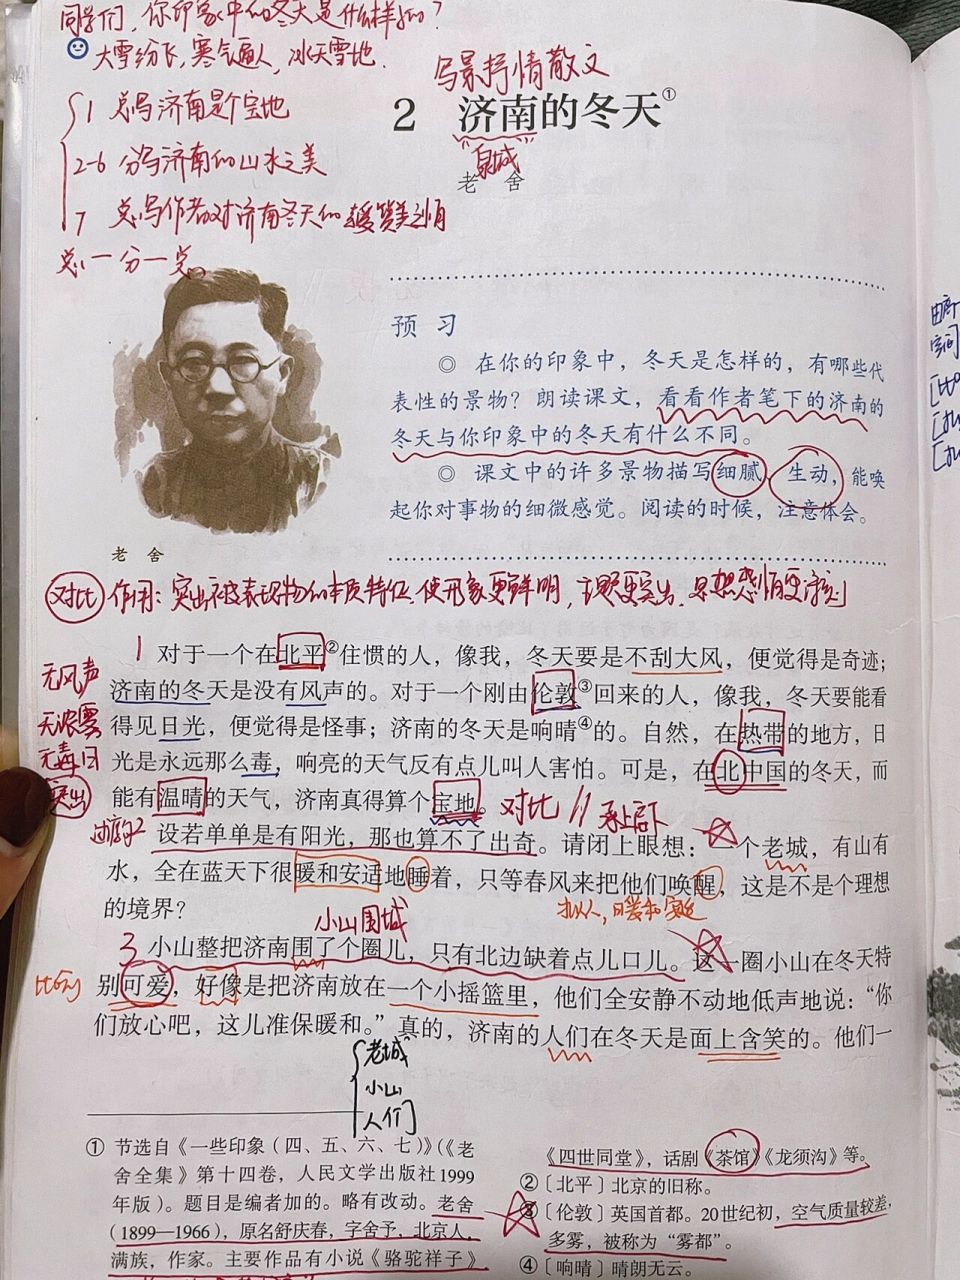 同学们，你印象中的冬天是什么样的？
大雪纷飞，寒气逼人，冰天雪地．
写景抒情散文
2 济南的冬天①
"泉城"
老 舍
1 总写济南是个宝地
2-6 分写济南的山水之美
7 总写作者对济南冬天的喜爱赞美之情
总一分一总。
预 习
◎ 在你的印象中，冬天是怎样的，有哪些代
表性的景物？朗读课文，看看作者笔下的济南的
冬天与你印象中的冬天有什么不同。
◎ 课文中的许多景物描写细腻、生动，能唤
起你对事物的细微感觉。阅读的时候，注意体会。
老 舍
对比 作用：突出被表现物的本质特征，使形象更鲜明，主题更突出，思想感情更深刻
1 对于一个在北平②住惯的人，像我，冬天要是不刮大风，便觉得是奇迹；
无风声
济南的冬天是没有风声的。对于一个刚由伦敦③回来的人，像我，冬天要能看
无浓雾
得见日光，便觉得是怪事；济南的冬天是响晴④的。自然，在热带的地方，日
无毒日
光是永远那么毒，响亮的天气反有点儿叫人害怕。可是，在北中国的冬天，而
突出
能有温晴的天气，济南真得算个宝地。 对比 // 承上启下
过渡句2 设若单单是有阳光，那也算不了出奇。请闭上眼想：一个老城，有山有
水，全在蓝天下很暖和安适地睡着，只等春风来把他们唤醒，这是不是个理想
的境界？
小山围城
拟人，
3 小山整把济南围了个圈儿，只有北边缺着点儿口儿。这一圈小山在冬天特
比喻 别可爱，好像是把济南放在一个小摇篮里，他们全安静不动地低声地说："你
们放心吧，这儿准保暖和。"真的，济南的人们在冬天是面上含笑的。他们一
老城
小山
人们
① 节选自《一些印象（四、五、六、七）》（《老
舍全集》第十四卷，人民文学出版社1999
年版）。题目是编者加的。略有改动。老舍
（1899—1966），原名舒庆春，字舍予，北京人，
满族，作家。主要作品有小说《骆驼祥子》
《四世同堂》，话剧《茶馆》《龙须沟》等。
②〔北平〕北京的旧称。
③〔伦敦〕英国首都。20世纪初，空气质量较差，
多雾，被称为"雾都"。
④〔响晴〕晴朗无云。